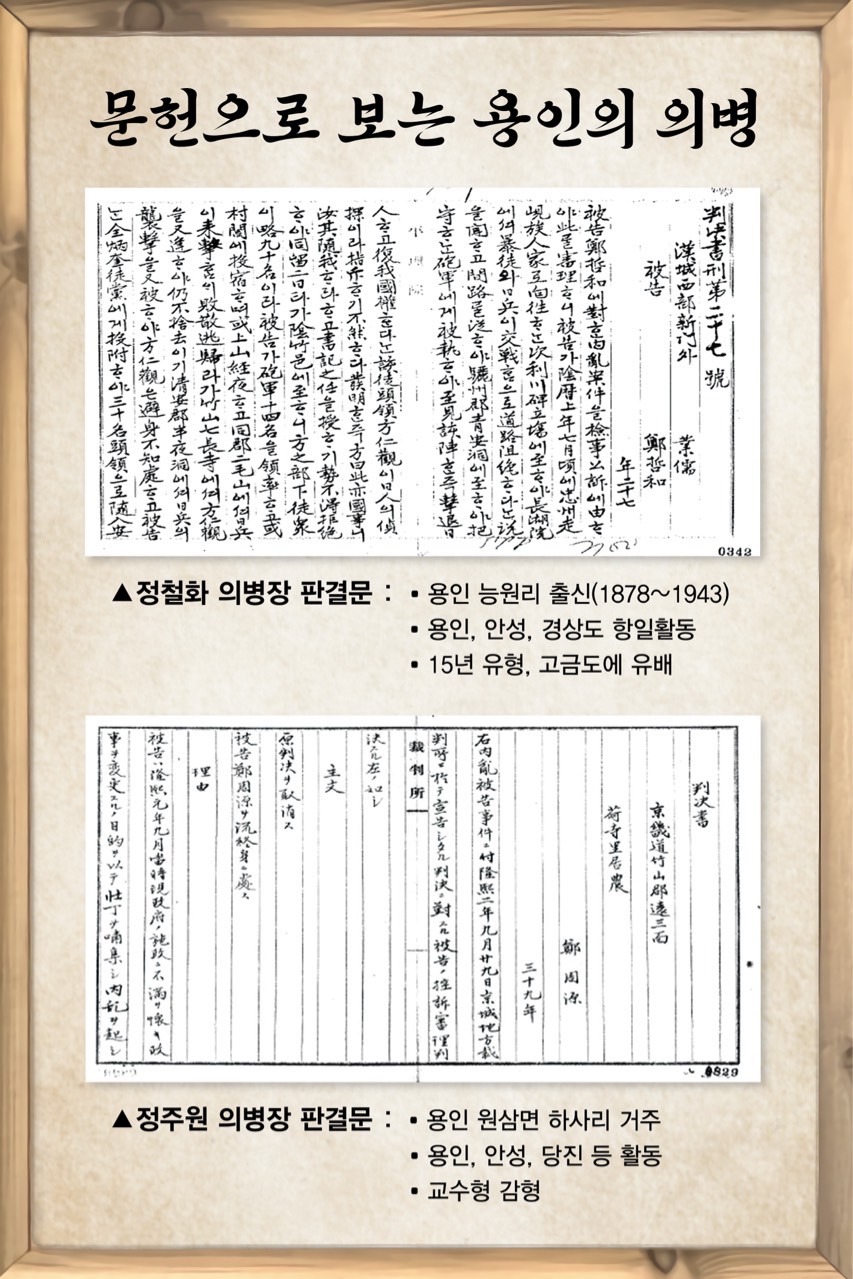 문헌으로 보는 용인의 의병
判決書刑第二十七號
漢城西部新門外 業儒
被告 鄭哲和
年二十七
被告鄭哲和에對한內亂案件을檢事公訴에由하
야此를審理하니被告가陰曆上年七月頃에忠州走
峴族人家로向往하는次利川碑立場에至하야長湖院
에셔暴徒와日兵이交戰함으로道路阻絶하다는說
을聞하고間路를從하야驪州郡青安洞에至하야把
守하는砲軍에게被執하야至見該陣한즉擊退日
人하고復我國權한다는該徒頭領方仁觀이日人의偵
探이라指斥하기不然하다發明한즉方曰此亦國事니
汝其隨我하라하고書記之任을授하기勢不得拒絶
하야同留二日타가陰竹邑에至하니方之部下徒衆
이略九十名이라被告가砲軍十四名을領率하고或
村閭에投宿하며或上山經夜하고同郡二毛山에셔日兵
이來擊함의敗散逃歸라가竹山七長寺에셔方仁觀
을又逢하야仍不捨去이기淸安郡半夜洞에셔日兵의
襲擊을又被하야方仁觀은避身不知處하고被告
는全炳奎徒黨에게投附하야三十名頭領으로隨入安
0342
▲정철화 의병장 판결문 : ▪ 용인 능원리 출신(1878~1943)
▪ 용인, 안성, 경상도 항일활동
▪ 15년 유형, 고금도에 유배
判决書
京畿道竹山郡遠三面
荷寺里居農
鄭周源
三十九年
右內亂被告事件ニ付隆熙二年九月廿九日京城地方裁
判所ニ於テ宣告シタル判決ニ對スル被告ノ控訴審理判
裁判所
決スル左ノ如シ
主文
原判决ヲ取消ス
被告鄭周源ヲ流終身ニ處ス
理由
被告ハ隆熙元年九月當時現政府ノ施政ニ不滿ヲ懷キ政
事ヲ変更スルノ目的ヲ以テ壯丁ヲ嘯集シ內乱ヲ起シ
0829
▲정주원 의병장 판결문 : ▪ 용인 원삼면 하사리 거주
▪ 용인, 안성, 당진 등 활동
▪ 교수형 감형